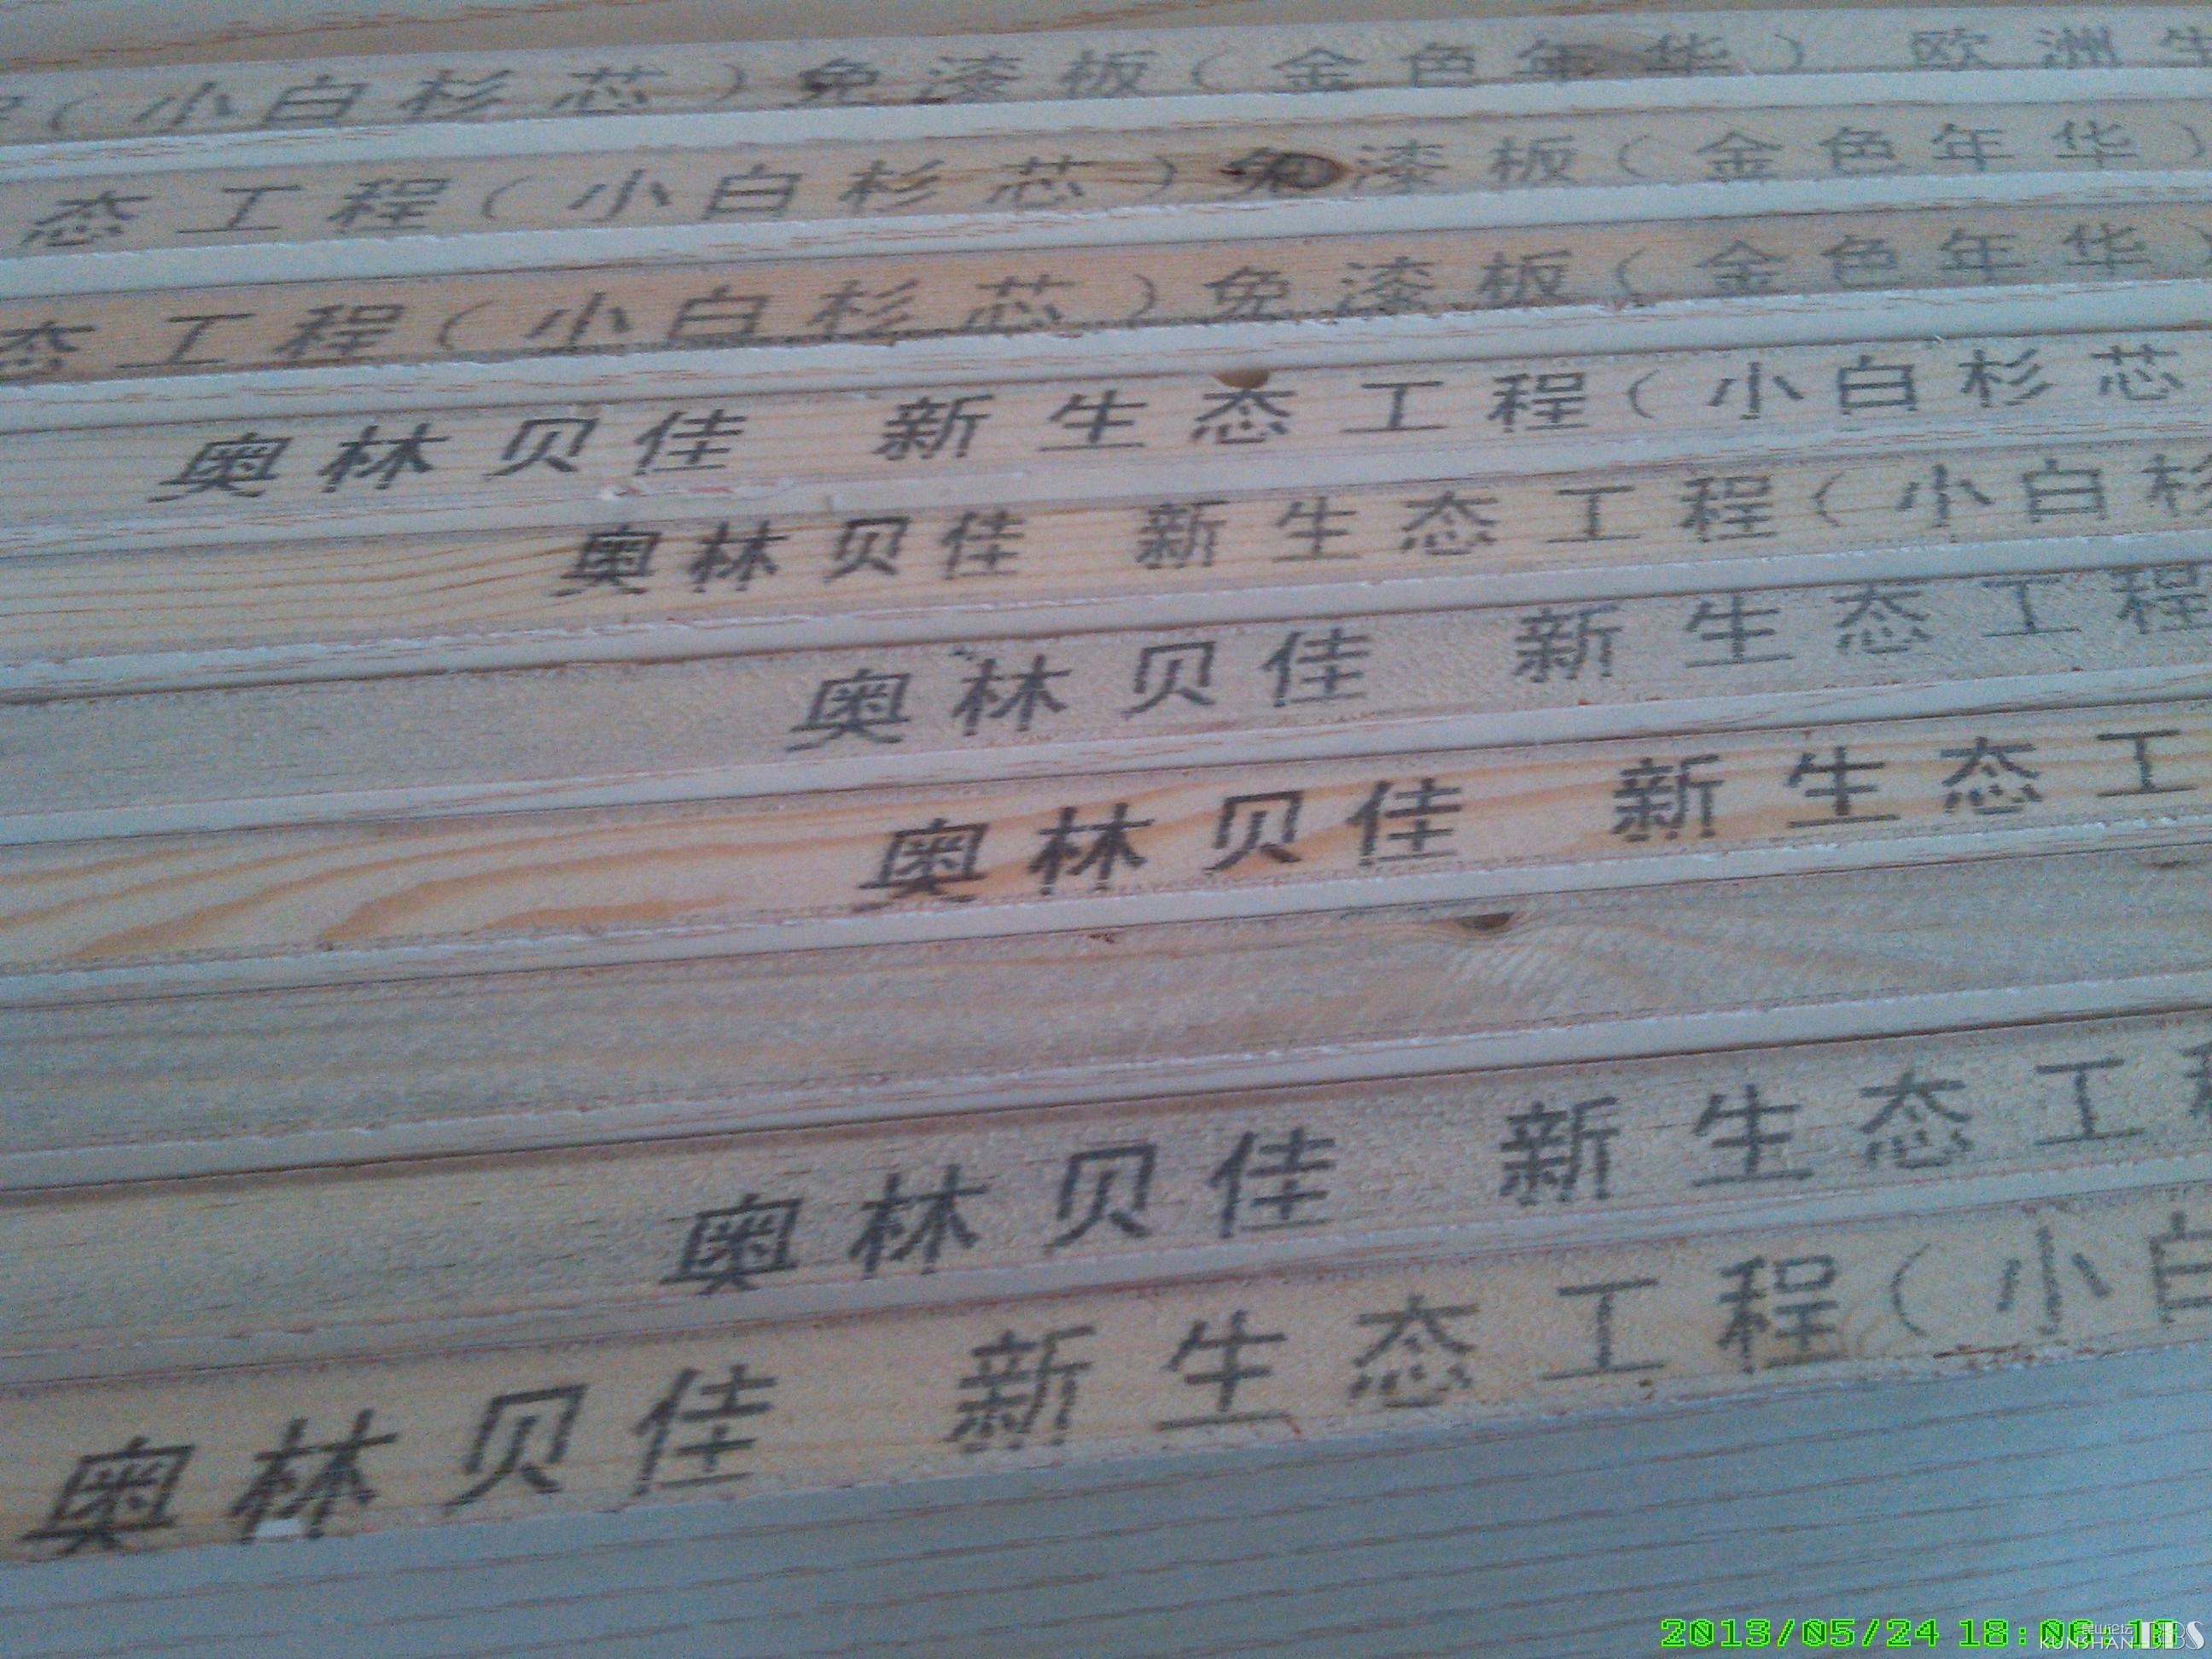 （小白杉芯）免漆板（金色年华） 欧洲
态工程（小白杉芯）免漆板（金色年华）
态工程（小白杉芯）免漆板（金色年华）
奥林贝佳 新生态工程（小白杉芯
奥林贝佳 新生态工程（小白杉
奥林贝佳 新生态工程
奥林贝佳 新生态工
奥林贝佳 新生态工
奥林贝佳 新生态工程（小白
2013/05/24 18:06:
昆山论坛
KUNSHAN BBS